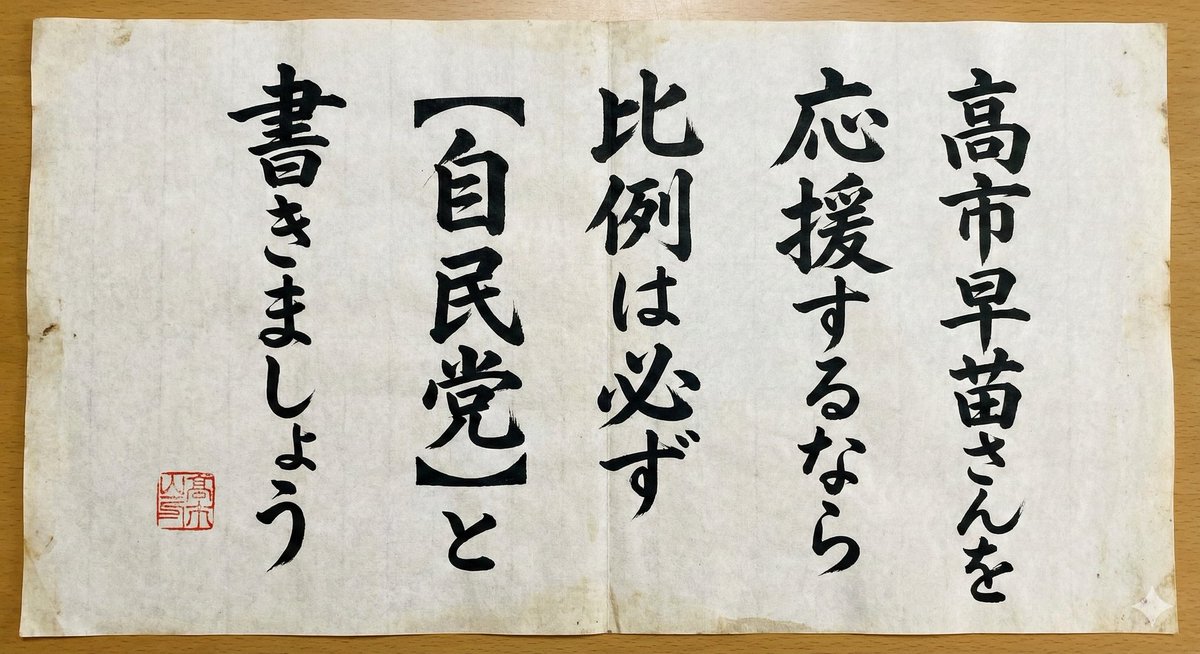 高市早苗さんを
応援するなら
比例は必ず
【自民党】と
書きましょう